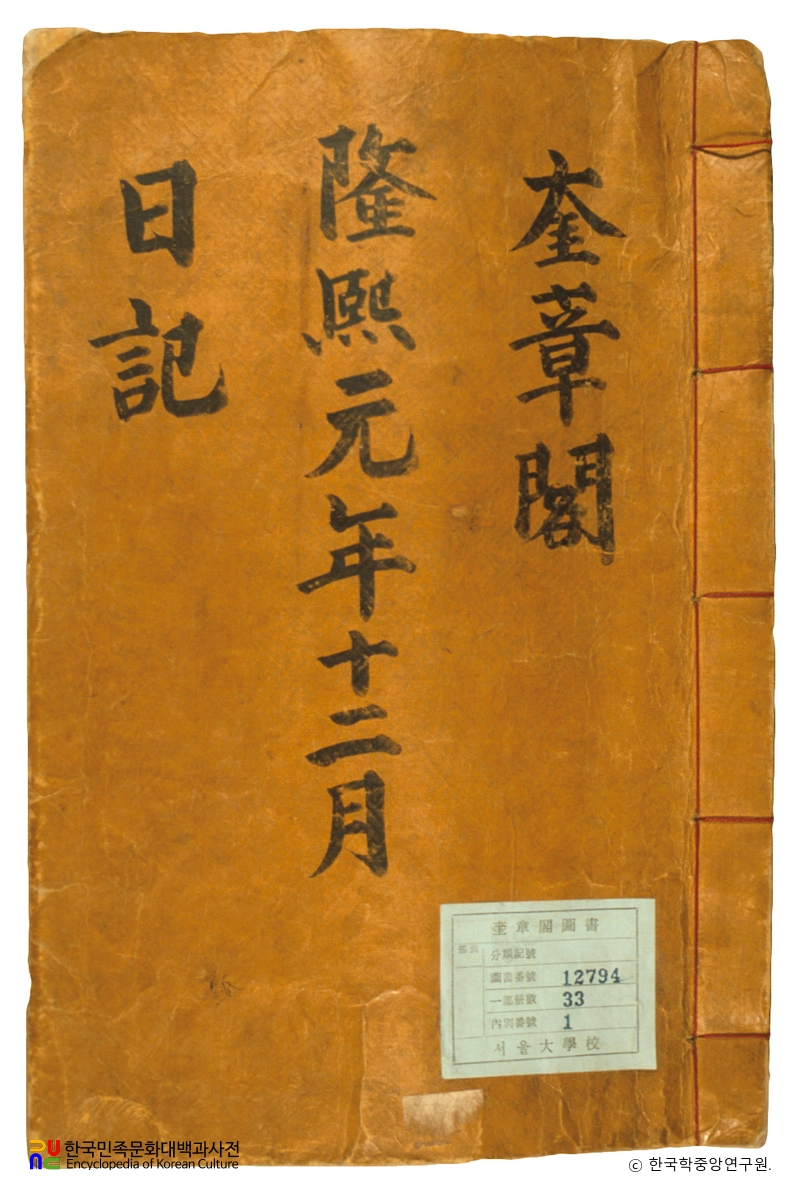 奎章閣
隆熙元年十二月
日記
奎章閣圖書
分類記號
圖書番號 12794
一部冊數 33
內別番號 1
서울大學校
한국민족문화대백과사전
Encyclopedia of Korean Culture
© 한국학중앙연구원.